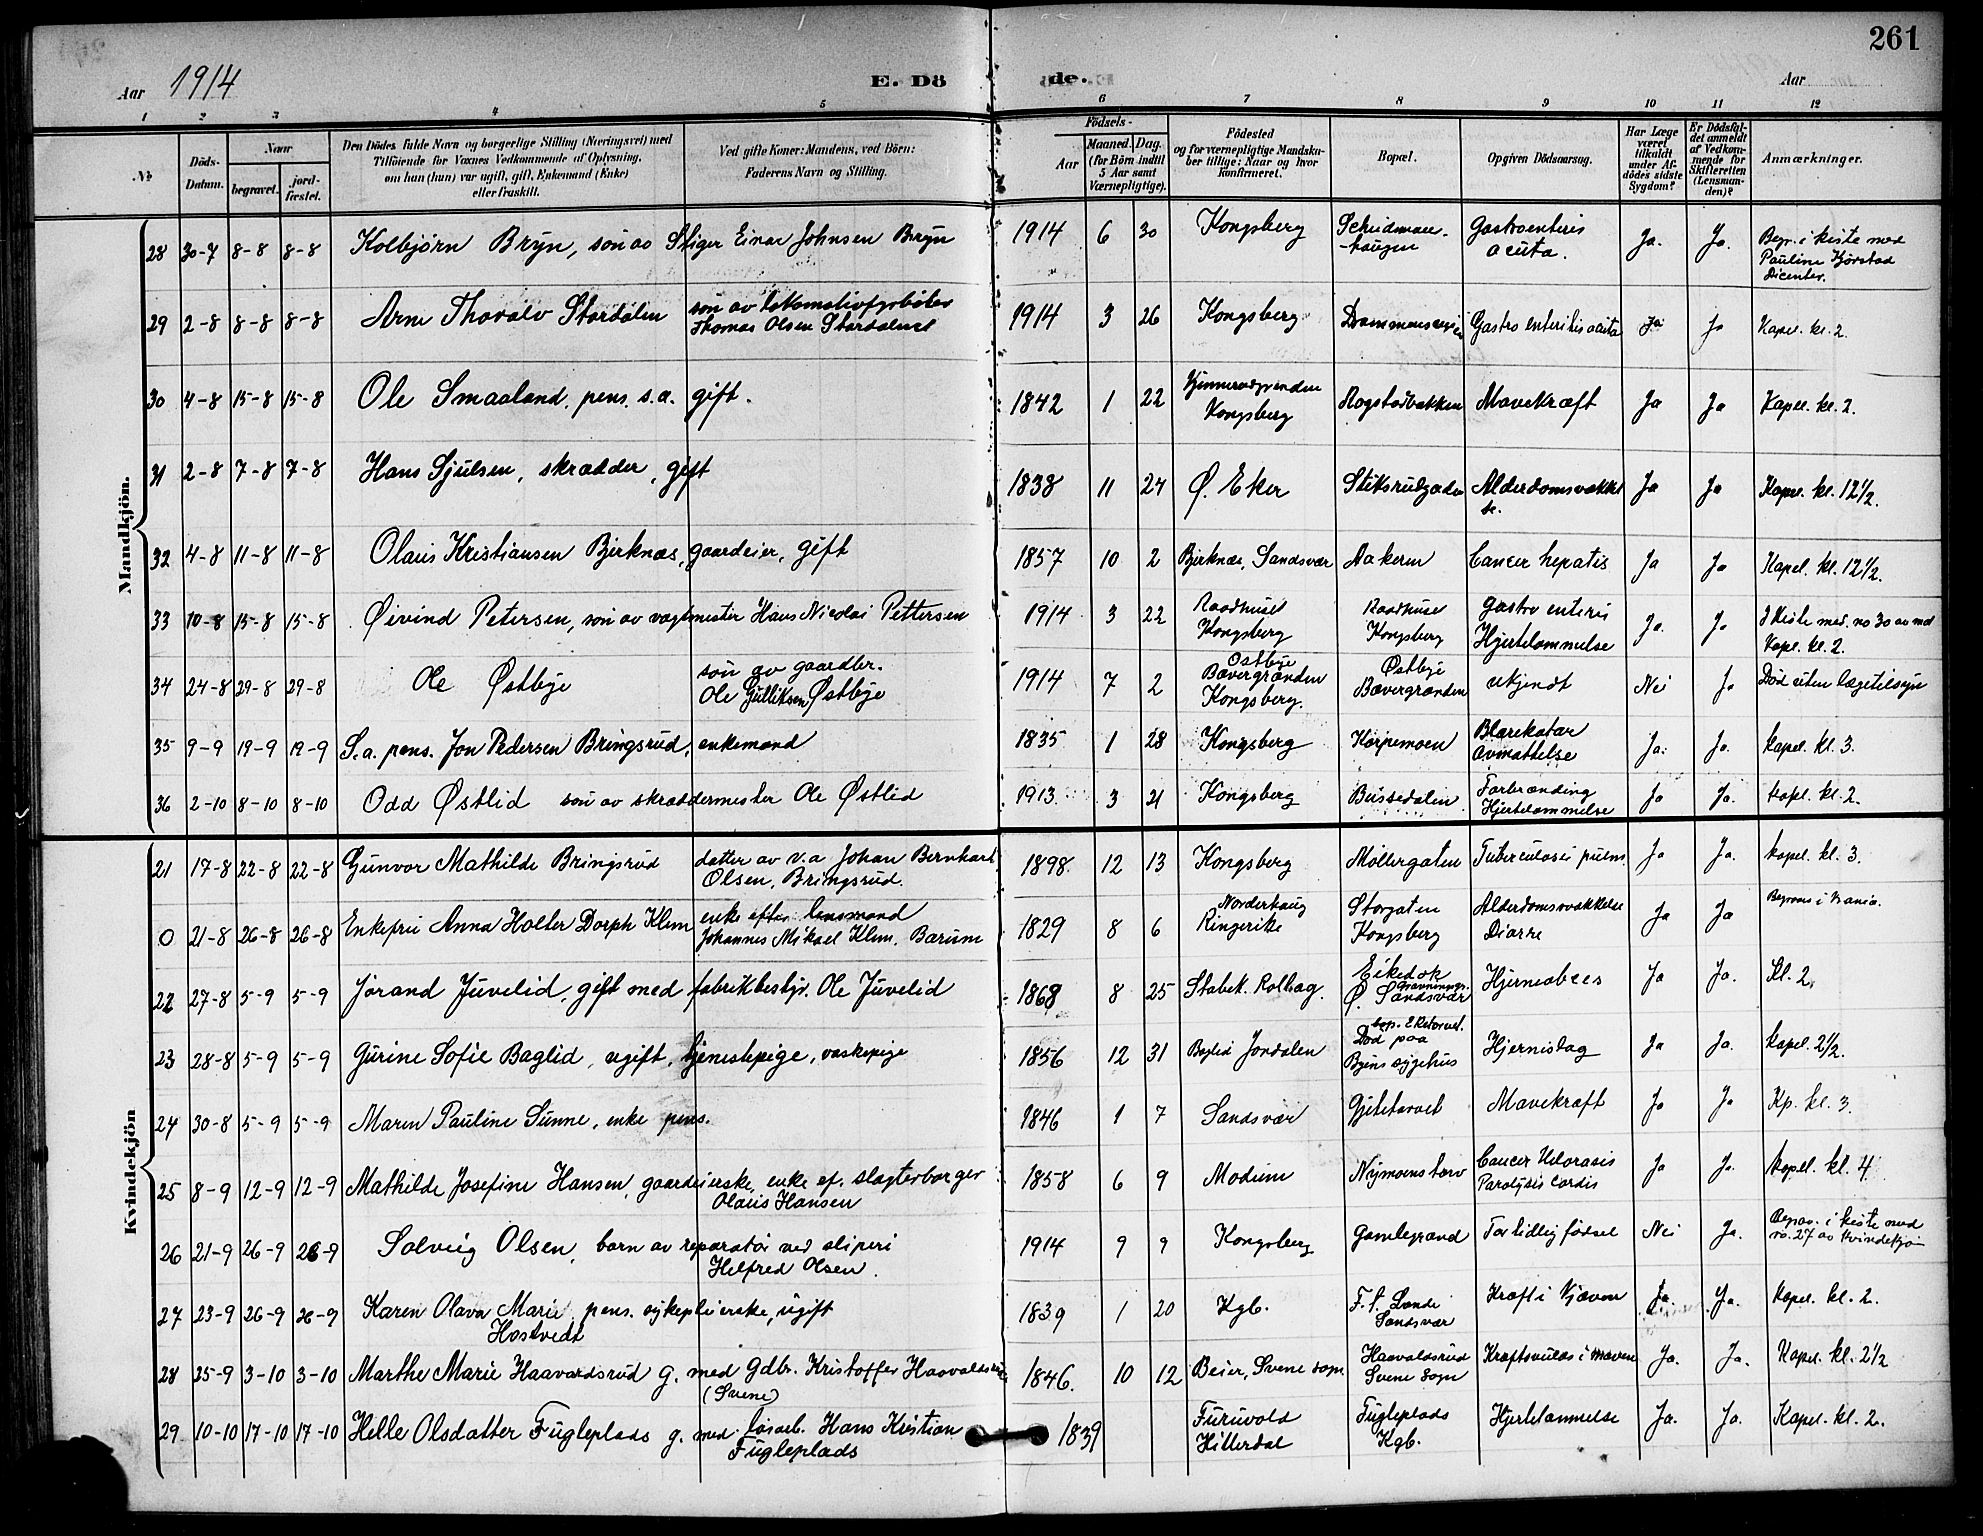 261
Aar 1914 E. Döde. Aar
1 2 3 4 5 6 7 8 9 10 11 12
No Döds-Datum. Naar begravet. jordfæstet. Den Dödes fulde Navn og borgerlige Stilling (Næringsvei) med Tilföiende for Voxnes Vedkommende af Oplysning, om han (hun) var ugift, gift, Enkemand (Enke) eller fraskilt. Ved gifte Koner: Mandens, ved Börn: Faderens Navn og Stilling. Födsels- Aar Maaned. Dag. (for Börn indtil 5 Aar samt Værnepligtige). Födested og for værnepligtige Mandskaber tillige: Naar og hvor konfirmeret. Bopæl. Opgiven Dödsaarsag. Har Læge været tilkaldt under Afdödes sidste Sygdom? Er Dödsfaldet anmeldt af Vedkommende for Skifteretten (Lensmanden)? Anmærkninger.
Mandkjön.
28 30-7 8-8 8-8 Kolbjørn Bryn, søn av Stiger Einar Johnsen Bryn 1914 6 30 Kongsberg Gastroenteris acuta. Ja. Ja. Begr. i kiste med Pauline Kjørstad
29 2-8 8-8 8-8 Arne Thoralv Stordalen søn av lokomotivfyrbøter Thomas Olsen Stordalen 1914 3 26 Kongsberg Drammensveien Gastro enteritis acuta Ja Ja Kapel. kl. 2.
30 4-8 15-8 15-8 Ole Smaaland, pens. s.a. gift. 1842 1 22 Kongsberg Rogstadbakken Mavekræft Ja Ja Kapel. kl. 2.
31 2-8 7-8 7-8 Hans Sjulsen, skrædder, gift 1838 11 24 Ø. Eker Alderdomsvakkelse. Ja Ja Kapel. kl. 12½.
32 4-8 11-8 11-8 Olaus Kristiansen Bjerknæs, gaardeier, gift 1857 10 2 Bjerknæs, Sandsvær Aakeren Cancer hepatis Ja Ja Kapel. kl. 12½.
33 10-8 15-8 15-8 Øivind Petersen, søn av vagtmester Hans Nicolai Pettersen 1914 3 22 Raadhuset Kongsberg Raadhuset Kongsberg Gastro enteris Hjertelammelse Ja. Ja I kiste med no 30 av md Kapel. kl. 2.
34 24-8 29-8 29-8 Ole Østbye søn av gaardbr. Ole Gulliksen Østbye 1914 7 2 Østbye Bævergrænden Kongsberg. Østbye Bævergrænden ukjendt Nei Ja Død uten lægetilsyn
35 9-9 19-9 19-9 S.a. pens. Jon Pedersen Bringsrud, enkemand 1835 1 28 Kongsberg Korpemoen Blærekatar avmattelse Ja. Ja. Kapel. kl. 3.
36 2-10 8-10 8-10 Odd Østlid søn av skræddermester Ole Østlid 1913. 3 21 Kongsberg Bussedalen Forbrænding Hjertelammelse Ja Ja. Kapel. kl. 2.
Kvindekjön
21 17-8 22-8 22-8 Gunvor Mathilde Bringsrud datter av v.a Johan Bernhart Olsen, Bringsrud. 1898. 12 13 Kongsberg Møllergaten Tuberculosis pulm. Ja Ja. Kapel. kl. 3.
0 21-8 26-8 26-8 Enkefru Anna Holter Dorph Klem enke efter lensmand Johannes Mikael Klem, Bærum 1829 8 6 Norderhaug Ringerike Storgaten Kongsberg Alderdomsvakkelse Diarre Ja Ja
22 27-8 5-9 5-9 Jørand Juvelid, gift med fabrikbestyr. Ole Juvelid 1868 8 25 Stabek. Rollag. Ø. Sandsvær Hjerneabces Ja Ja. Kl. 2.
23 28-8 5-9 5-9 Gurine Sofie Baglid, ugift, tjenestepige, vaskepige 1856 12 31 Baglid Jondalen Død paa Byens sygehus Hjerneslag Ja Ja. Kapel. 2½.
24 30-8 5-9 5-9 Maren Pauline Sunne, enke pens. 1846 1 7 Sandsvær Gjetetorvet Mavekræft Ja Ja Kp. kl. 3.
25 8-9 12-9 12-9 Mathilde Josefine Hansen, gaardeierske, enke ef. slagterborger Olaus Hansen 1858 6 9 Modum Nymoens torv Cancer Uterasis Paralysis cordis Ja Ja. Kapel. kl. 4
26 21-9 26-9 26-9 Solveig Olsen, barn av reparatør ved sliperi Helfred Olsen. 1914 9 9 Kongsberg Gamlegrænd For tidlig fødsel Nei Ja. Begrav. i kiste med no. 27 av kvindekjøn
27 23-9 26-9 26-9 Karen Olava Marie Hostvedt pens. sykepleierske, ugift 1839 1 20 Kgb. Sandsvær Kræft i Ja Ja. Kapel. kl. 2.
28 25-9 3-10 3-10 Marthe Marie Haavardsrud g. med Gdbr. Kristoffer Haavaldsrud (Svene) 1846. 10 12 Beier, Svene sogn. Haavaldsrud Svene sogn Kræftsvulst i maven Ja. Ja. Kapel. kl. 2½
29 10-10 17-10 17-10 Helle Olsdatter Fugleplads g. med løsarb. Hans Kristian Fugleplads 1839 Furuvold Hitterdal Fugleplads Kgb. Hjertelammelse Ja. Ja. Kapel. kl. 2.